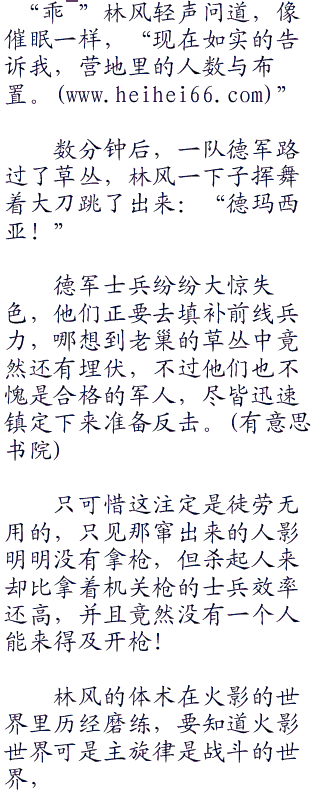 “乖”林风轻声问道，像
催眠一样，“现在如实的告
诉我，营地里的人数与布
置。(www.heihei66.com)”
数分钟后，一队德军路
过了草丛，林风一下子挥舞
着大刀跳了出来：“德玛西
亚！”
德军士兵纷纷大惊失
色，他们正要去填补前线兵
力，哪想到老巢的草丛中竟
然还有埋伏，不过他们也不
愧是合格的军人，尽皆迅速
镇定下来准备反击。(有意思
书院)
只可惜这注定是徒劳无
用的，只见那窜出来的人影
明明没有拿枪，但杀起人来
却比拿着机关枪的士兵效率
还高，并且竟然没有一个人
能来得及开枪！
林风的体术在火影的世
界里历经磨练，要知道火影
世界可是主旋律是战斗的世
界，